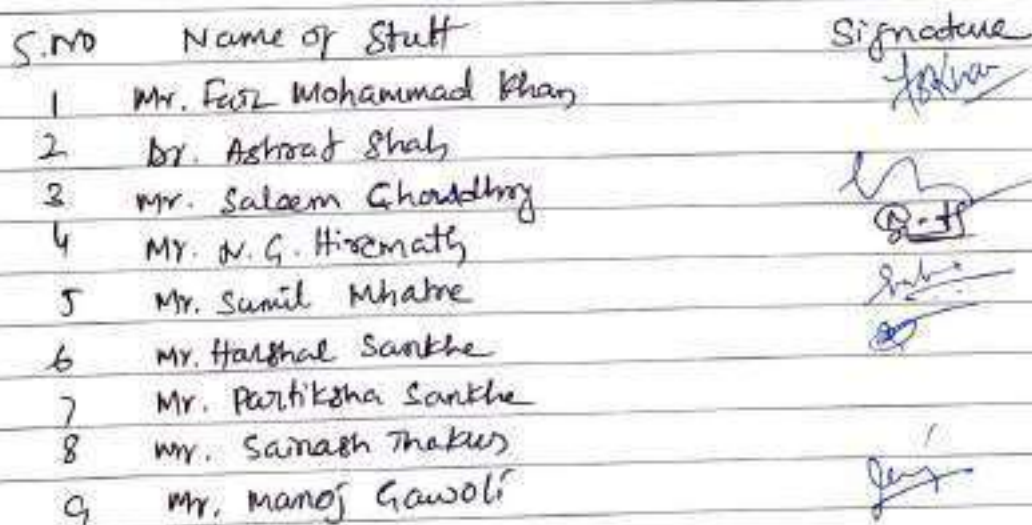 S.No Name of Staff Signature
1 Mr. Faiz Mohammad Khan
2 Dr. Ashraf Shah
3 Mr. Saleem Chowdhry
4 Mr. N. G. Hiremath
5 Mr. Sunil Mhatre
6 Mr. Harshal Sankhe
7 Mr. Partiksha Sankhe
8 Mr. Sainash Thakur
9 Mr. Manoj Gawoli